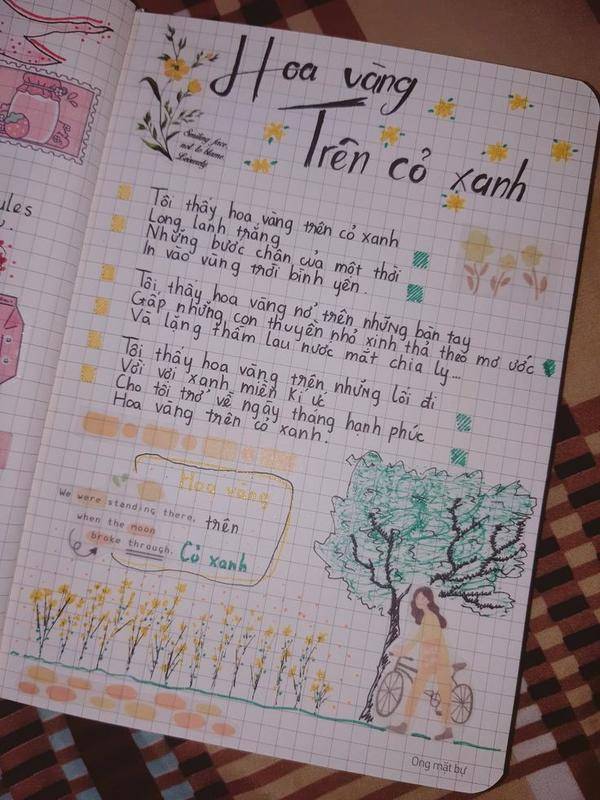 ules
Hoa vàng
Trên cỏ xanh
Smiling face,
not to blame
Tôi thấy hoa vàng trên cỏ xanh
Long lanh trắng
Những bước chân của một thời
In vào vùng trời bình yên.
Tôi thấy hoa vàng nở trên những bàn tay
Gấp những con thuyền nhỏ xinh thả theo mơ ước
Và lặng thầm lau nước mắt chia ly...
Tôi thấy hoa vàng trên những lối đi
Vời vợi xanh miền kí ức
Cho tôi trở về ngày tháng hạnh phúc
Hoa vàng trên cỏ xanh.
Hoa vàng
trên
Cỏ xanh
We were standing there,
when the moon
broke through.
Ong mặt bự